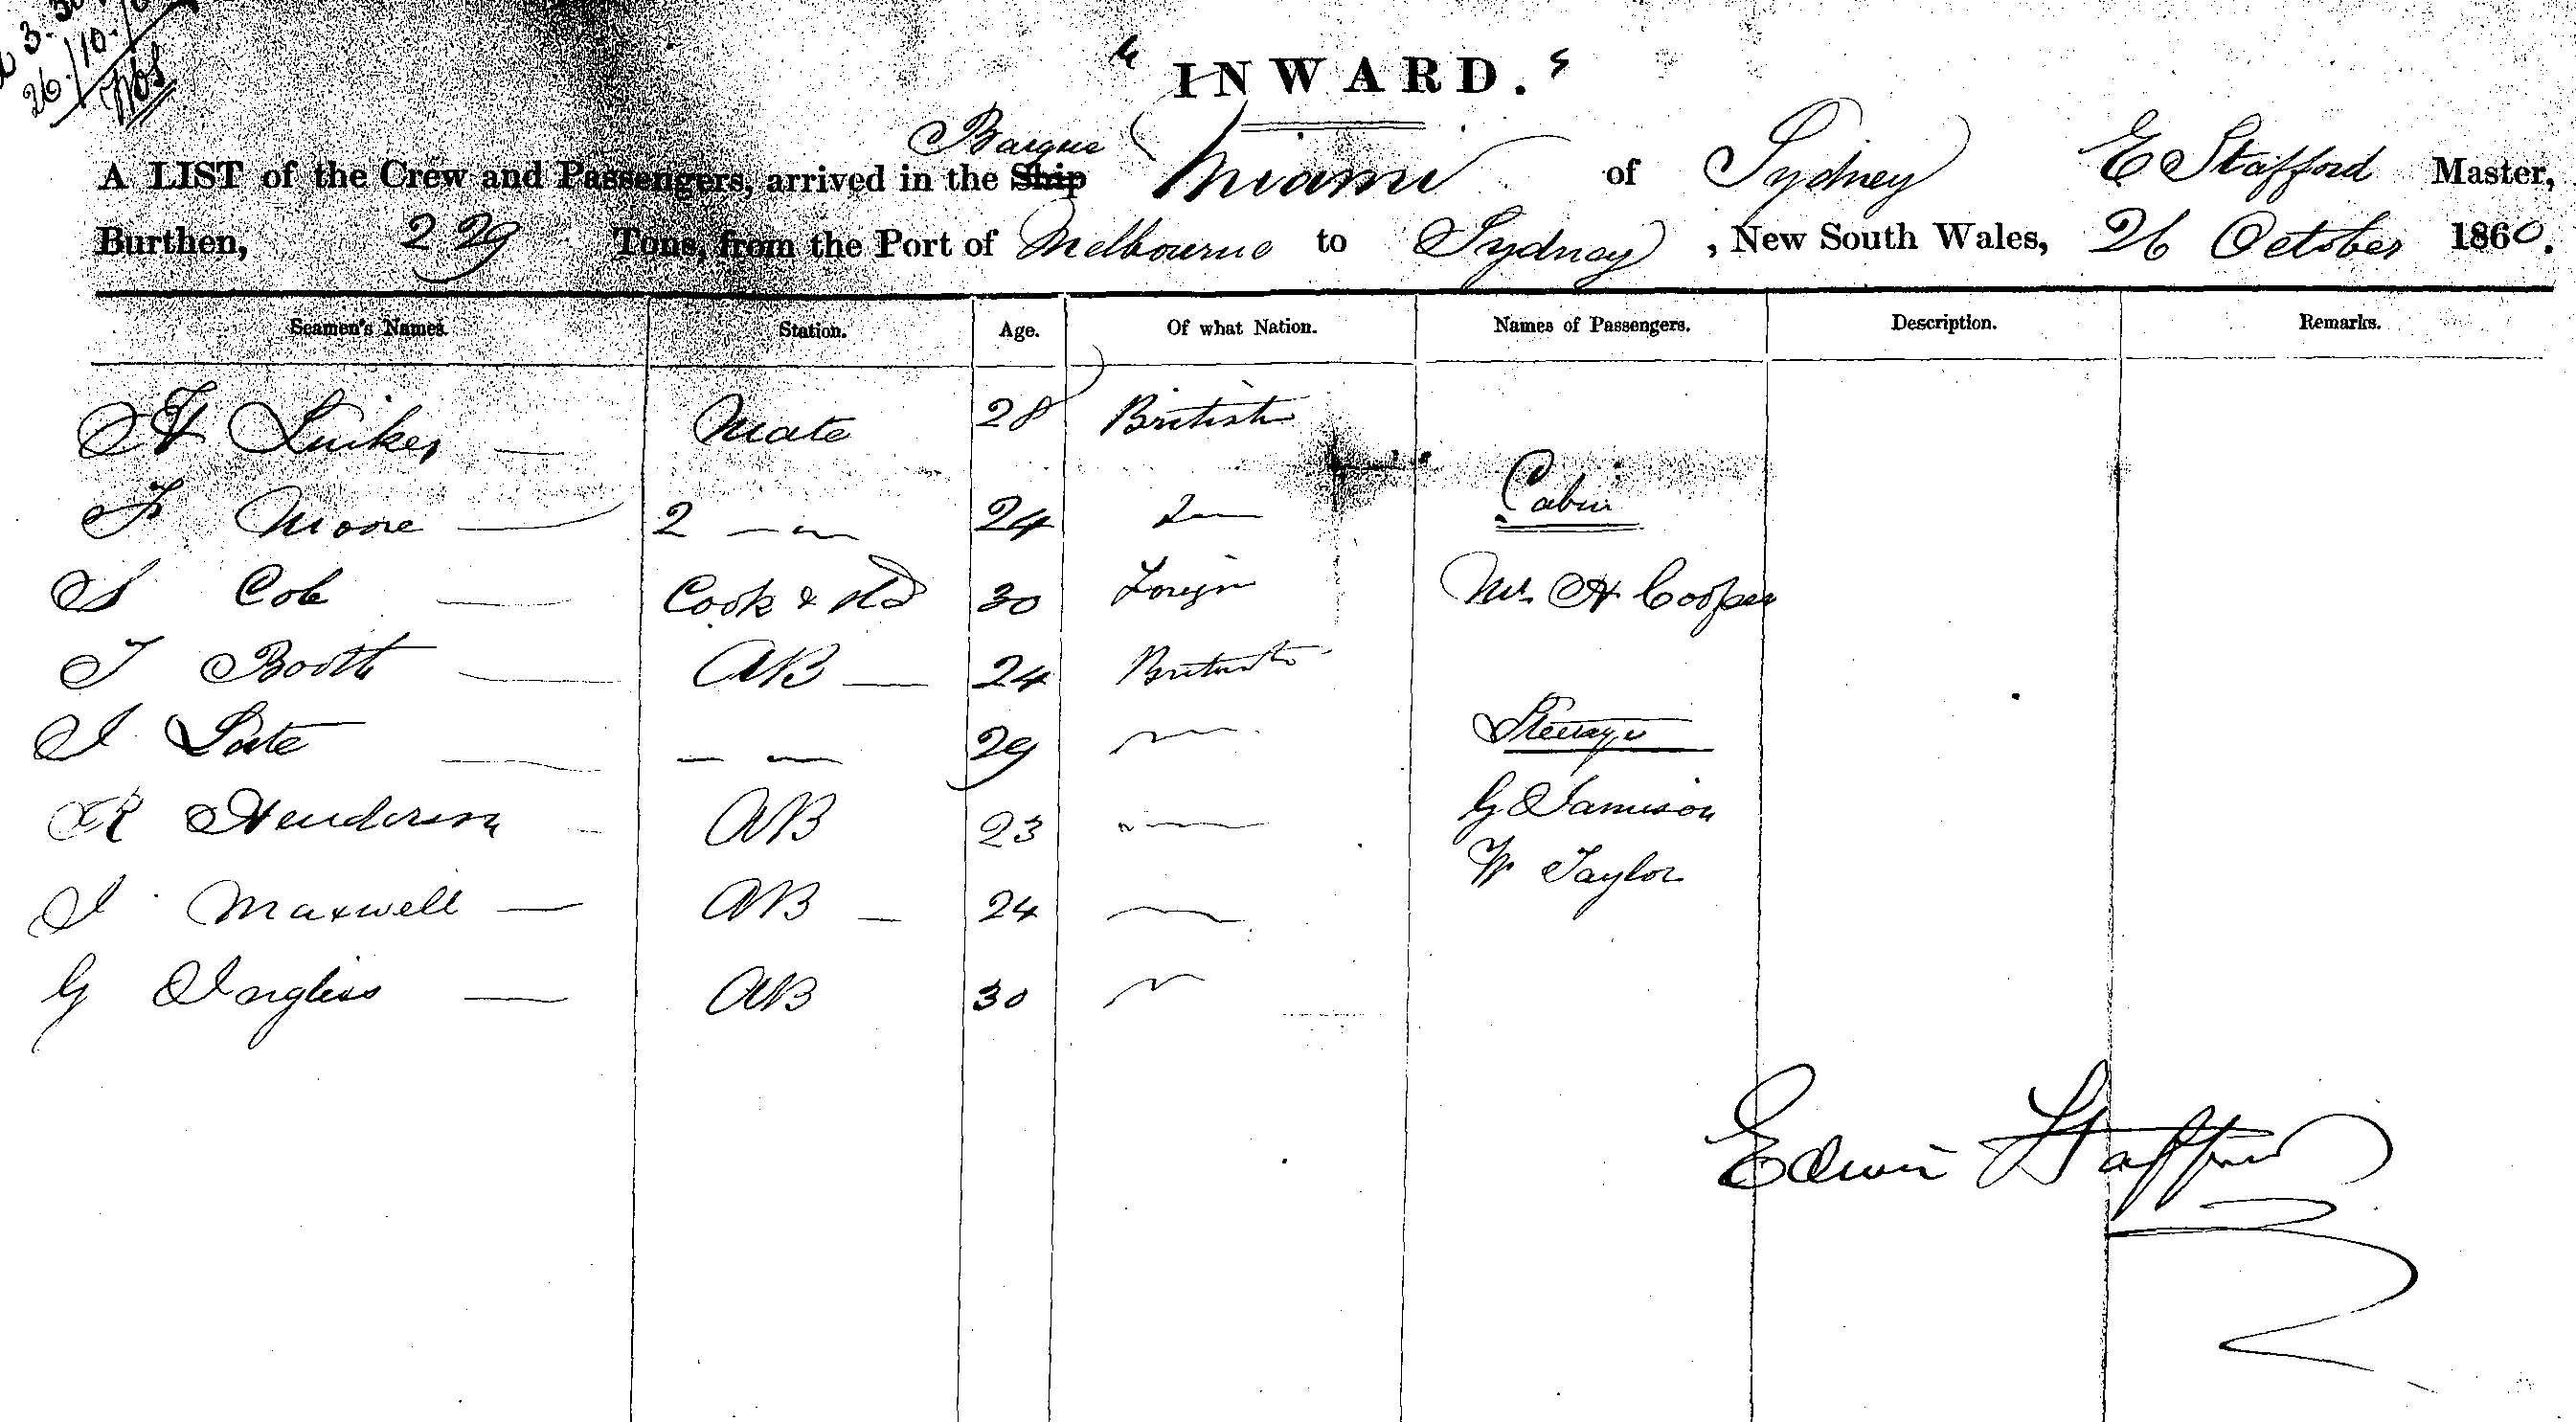 26/10/
"INWARD."
Barque
A LIST of the Crew and Passengers, arrived in the Ship Miami of Sydney E Stafford Master,
Burthen, 229 Tons, from the Port of Melbourne to Sydney, New South Wales, 26 October 1860.
Seamen's Names. Station. Age. Of what Nation. Names of Passengers. Description. Remarks.
Mate 28 British
Moore 2 — 24 Cabin
S Cole Cook & Std 30 Foreign Mr. H Cooper
T Booth AB — 24 British
J — — 29 Steerage
R Henderson AB 23 G Jamieson
W Taylor
J Maxwell — AB — 24
G Ingliss — AB 30
Edwin Stafford